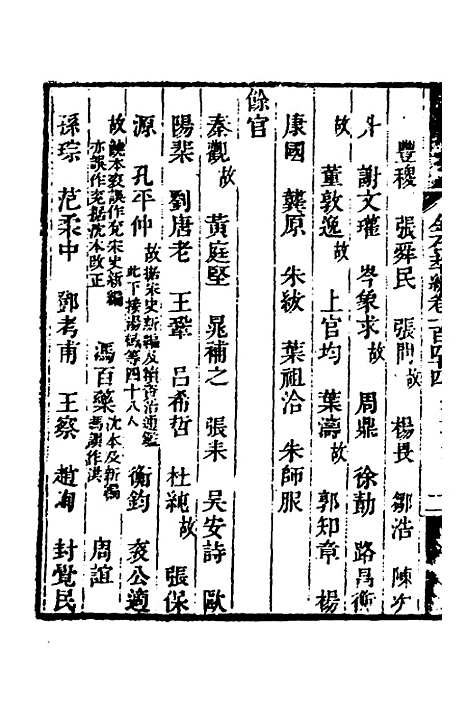 豐稷　張舜民　張問故　楊畏　鄒浩　陳次
升　謝文瓘　岑象求故　周鼎　徐勣　路昌衡
故　董敦逸故　上官均　葉濤故　郭知章　楊
康國　龔原　朱紱　葉祖洽　朱師服
餘官
秦觀故　黃庭堅　晁補之　張耒　吳安詩　歐
陽棐　劉唐老　王鞏　呂希哲　杜純故　張保
源　孔平仲故據宋史新編及續資治通鑑此下接湯戫等四十八人　衡鈞　兖公適
故讀本兖誤作充宋史新編亦誤作兖據沈本改正　馮百藥沈本及新編馮誤作洪　周誼
孫琮　范柔中　鄧考甫　王察　趙峋　封覺民
金石萃編卷一百四十四